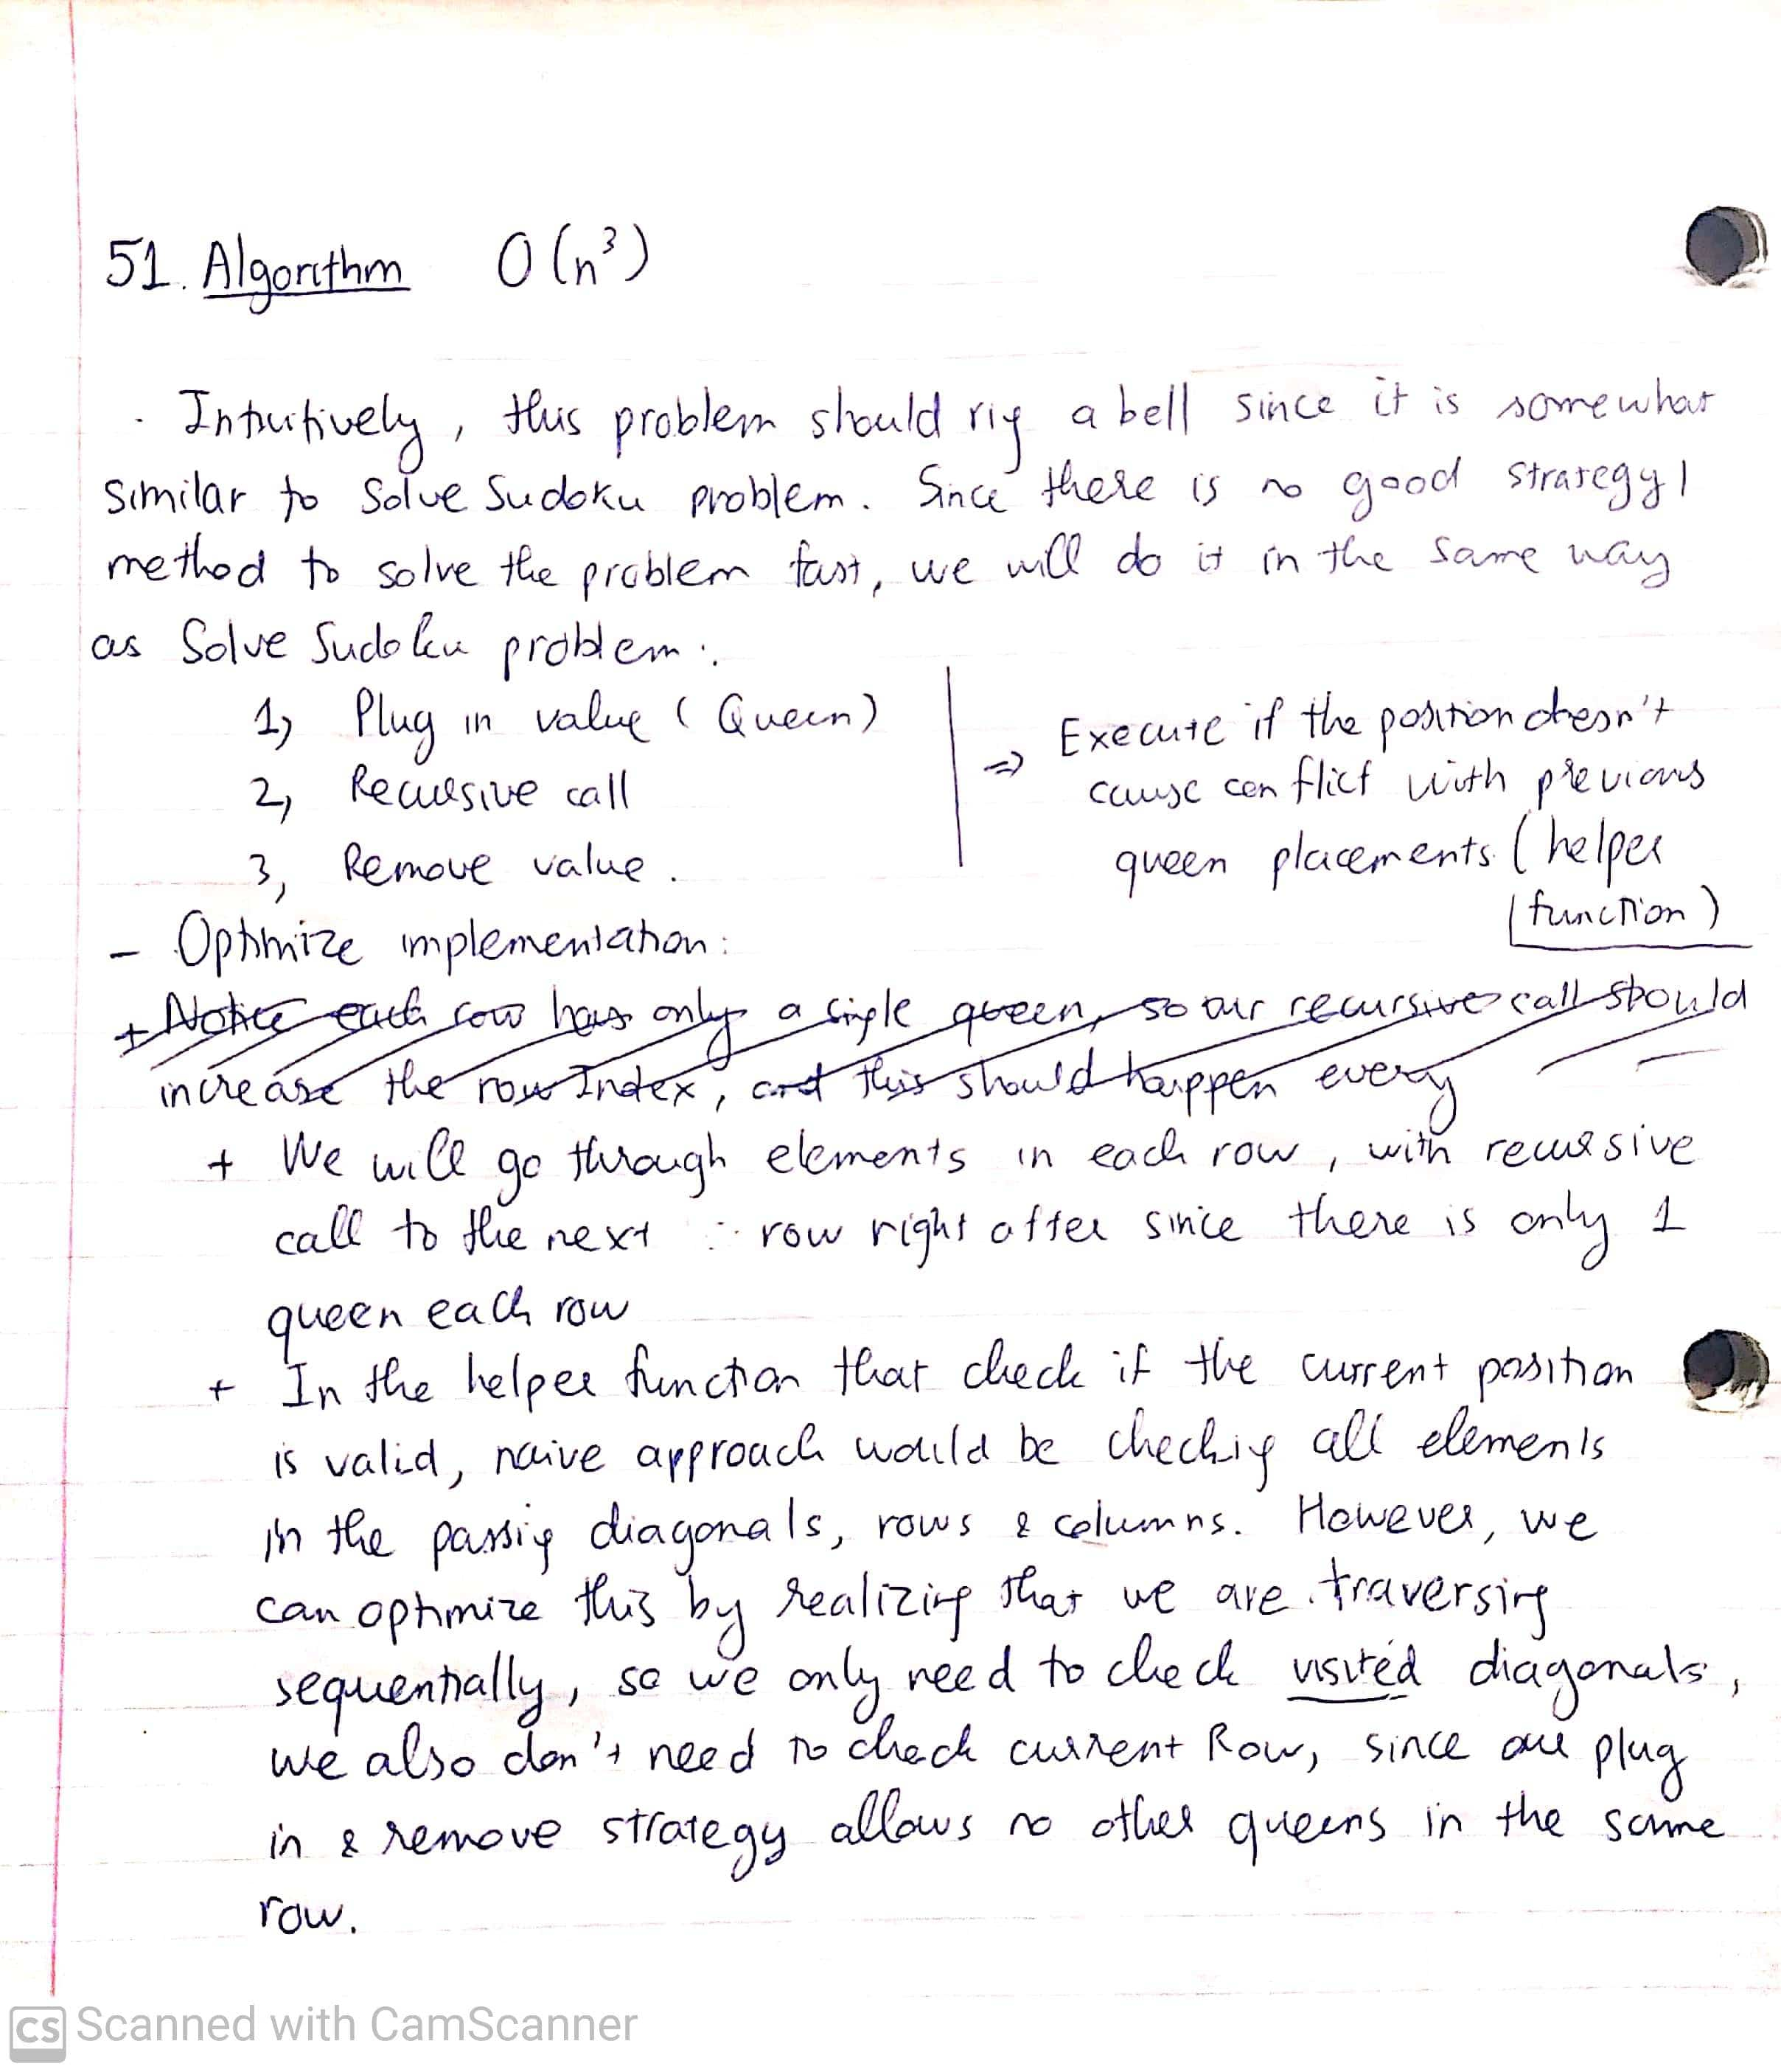 51. Algorithm O(n³)
· Intuitively, this problem should rig a bell since it is somewhat
similar to Solve Sudoku problem. Since there is no good strategy /
method to solve the problem fast, we will do it in the same way
as Solve Sudoku problem:
1) Plug in value (Queen)
2) Recursive call
3) Remove value.
⇒ Execute if the position doesn't
cause conflict with previous
queen placements (helper
function)
- Optimize implementation:
+ Notice each row has only a single queen, so our recursive call should
increase the row Index, and this should happen every
+ We will go through elements in each row, with recursive
call to the next row right after since there is only 1
queen each row
+ In the helper function that check if the current position
is valid, naive approach would be checkig all elements
in the passig diagonals, rows & columns. However, we
can optimize this by realizing that we are traversing
sequentially, so we only need to check visited diagonals,
we also don't need to check current Row, since our plug
in & remove strategy allows no other queens in the same
row.
CS Scanned with CamScanner